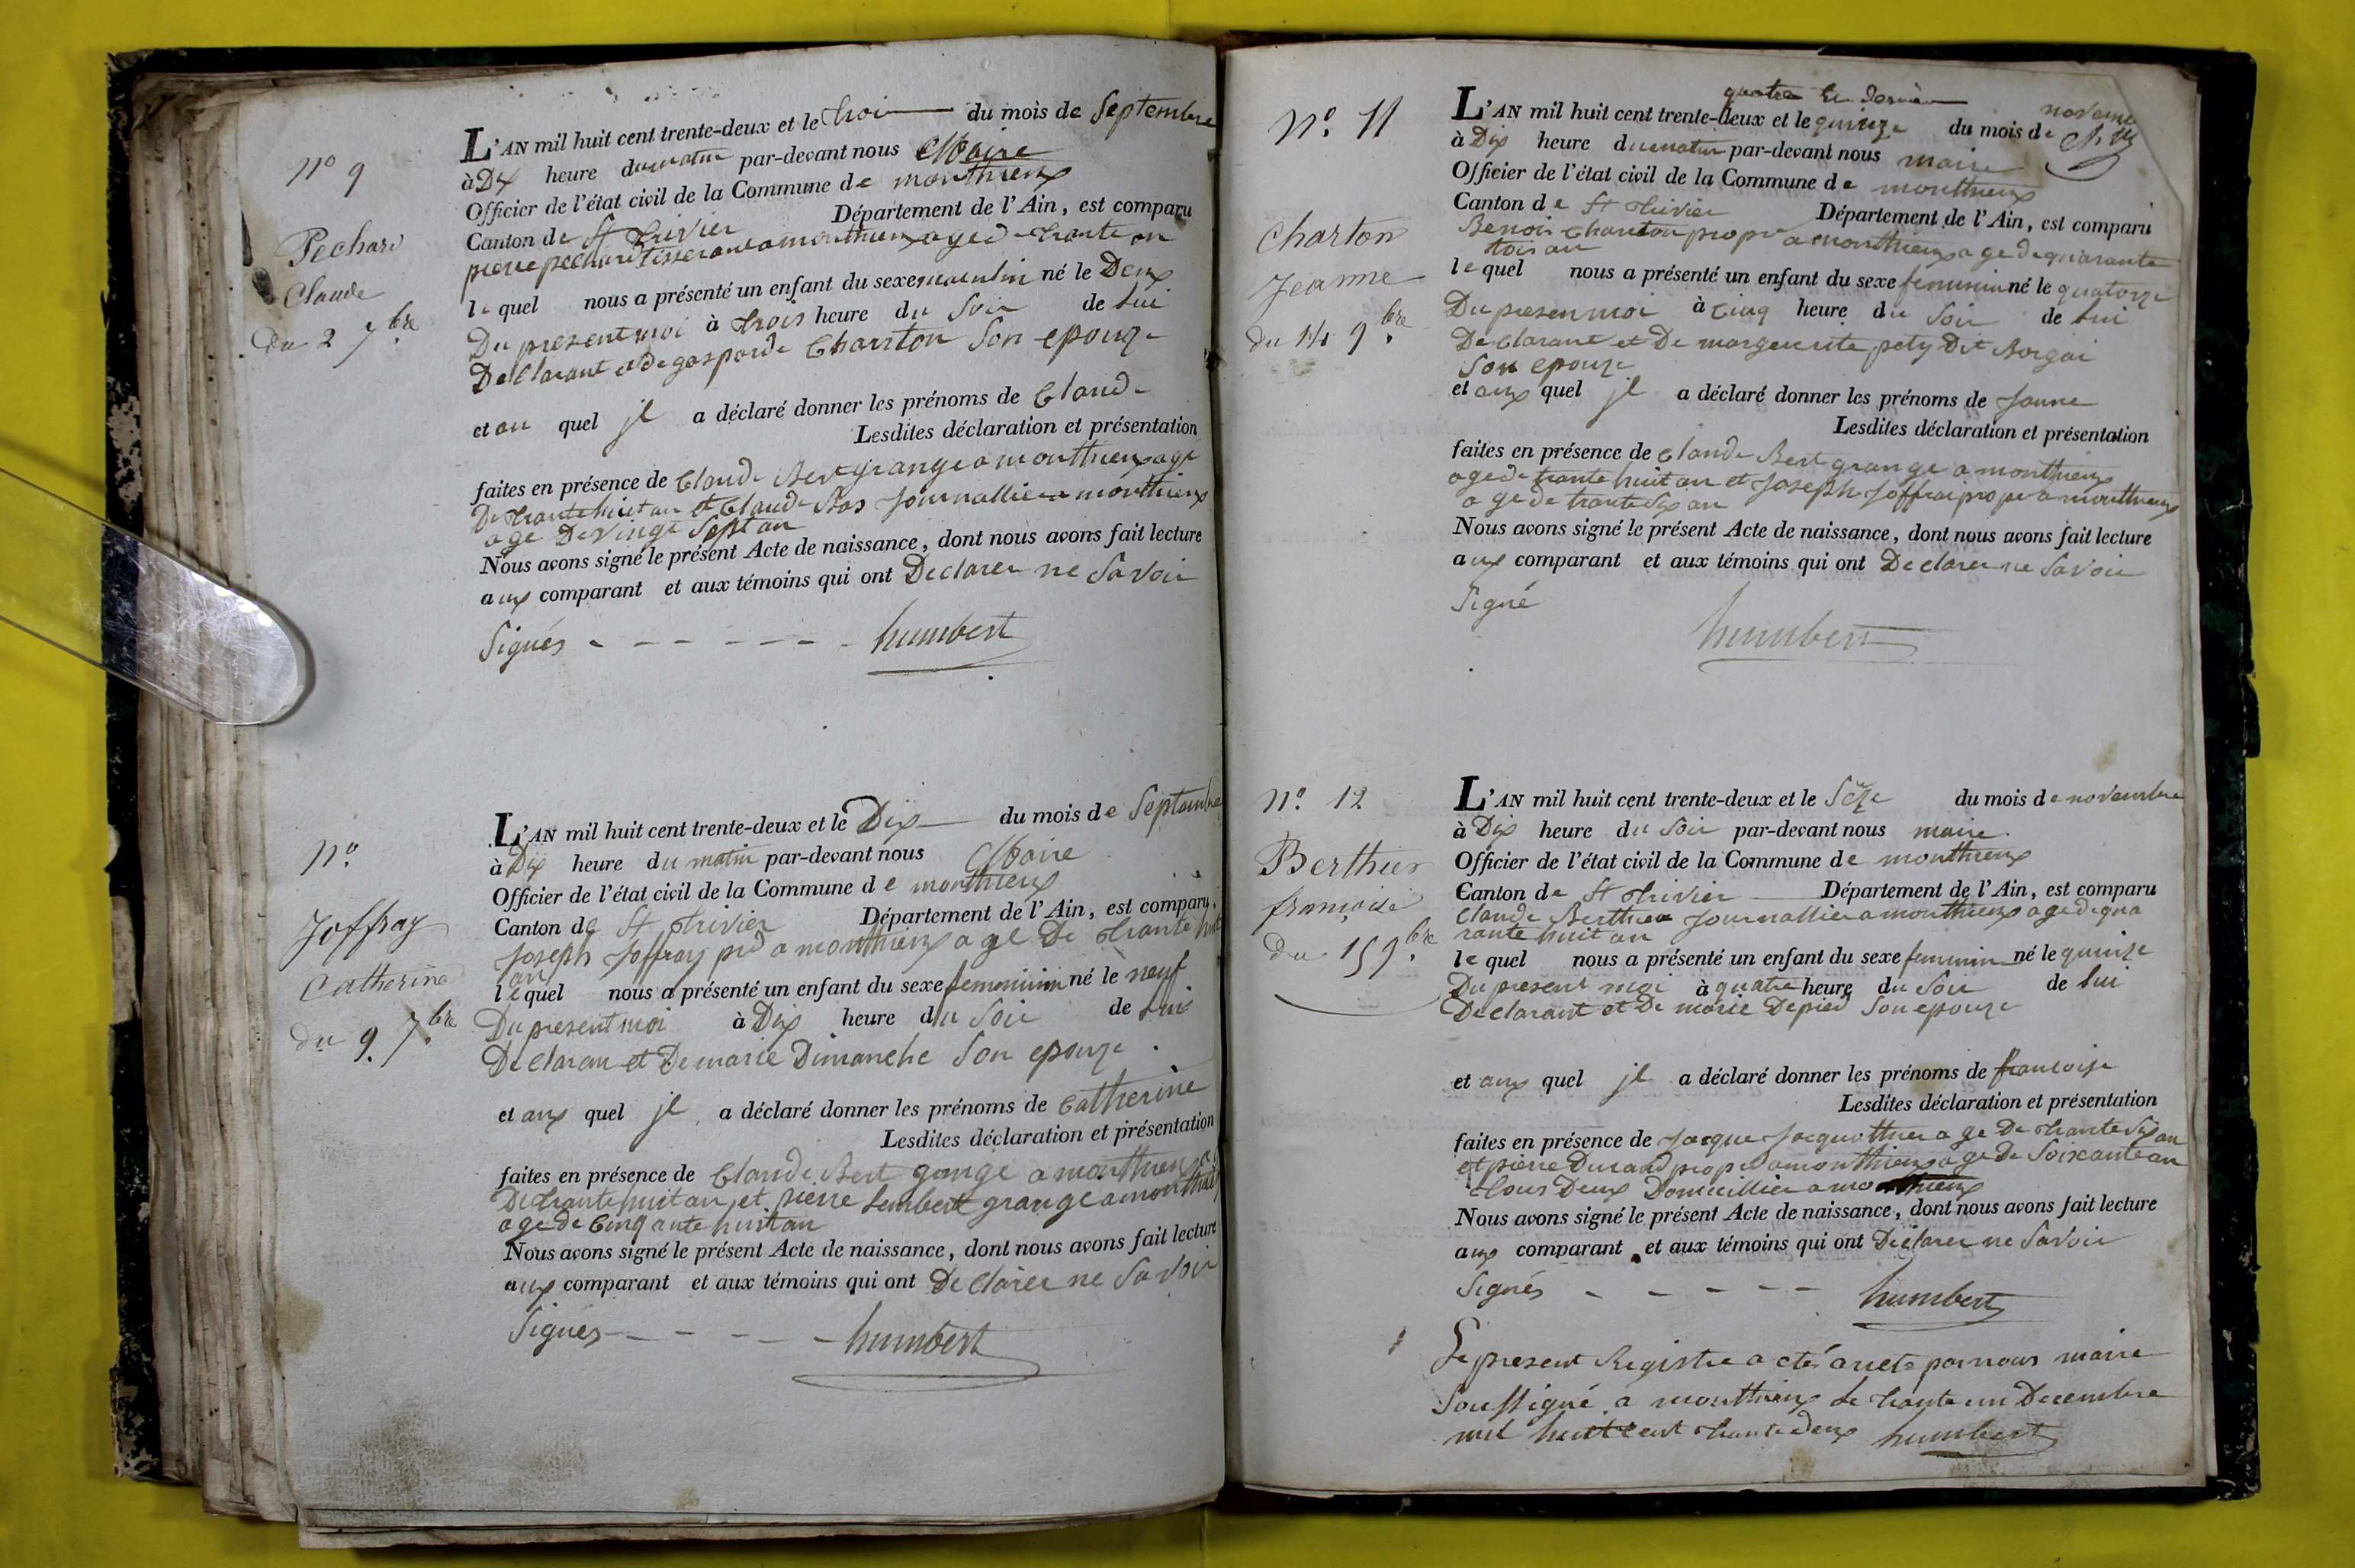 N° 9
Pechard
Claude
du 2 7.bre
L'AN mil huit cent trente-deux et le trois du mois de Septembre
à Dix heure du matin par-devant nous Maire
Officier de l'état civil de la Commune de monthieux
Canton de St Trivier Département de l'Ain, est comparu
pierre pechard Tisserant a monthieux age de trante an
le quel nous a présenté un enfant du sexe masculin né le Deux
Du present moi à trois heure du Soir de lui
Declarant et de gasparde Charrton Son epouze
et au quel jl a déclaré donner les prénoms de Claude
Lesdites déclaration et présentation
faites en présence de Claude Bert grange a monthieux age
De trante huit an et Claude Bas Journallier a monthieux
age De vingt Sept an
Nous avons signé le présent Acte de naissance, dont nous avons fait lecture
aux comparant et aux témoins qui ont Declarer ne Savoir
Signés humbert
N°
Joffray
Catherine
du 9. 7.bre
L'AN mil huit cent trente-deux et le Dix du mois de Septembre
à Dix heure du matin par-devant nous Maire
Officier de l'état civil de la Commune de monthieux
Canton de St trivier Département de l'Ain, est comparu
Joseph Joffray prd a monthieux age De trante huit
an
le quel nous a présenté un enfant du sexe femminin né le neuf
Du present moi à Dix heure du Soir de lui
Declaran et De marie Dimanche Son epouze
et aux quel jl a déclaré donner les prénoms de Catherine
Lesdites déclaration et présentation
faites en présence de Claude Bert gange a monthieux
De trante huit an et pierre humbert grange a monthieux
age de Cinqante huit an
Nous avons signé le présent Acte de naissance, dont nous avons fait lecture
aux comparant et aux témoins qui ont Declarer ne Savoir
Signés humbert
N° 11
Charton
Jeanne
du 14 9.bre
quatre
novembre
L'AN mil huit cent trente-deux et le quinze du mois de
à Dix heure du matin par-devant nous maire
Officier de l'état civil de la Commune de monthieux
Canton de St trivier Département de l'Ain, est comparu
Benoit Charton propre a monthieux age de quarante
tois an
le quel nous a présenté un enfant du sexe feminin né le quatorze
Du presen moi à Cinq heure du Soir de lui
Declarant et De marguerite pety Dit Borgai
Son epouze
et aux quel jl a déclaré donner les prénoms de Janne
Lesdites déclaration et présentation
faites en présence de Claude Bert grange a monthieux
age de trante huit an et Joseph Joffrai propre a monthieux
age de trante Six an
Nous avons signé le présent Acte de naissance, dont nous avons fait lecture
aux comparant et aux témoins qui ont Declarer ne Savoir
Signé
humbert
N° 12
Berthier
françoise
du 15 9.bre
L'AN mil huit cent trente-deux et le Sèze du mois de novembre
à Dix heure du Soir par-devant nous maire
Officier de l'état civil de la Commune de monthieux
Canton de St trivier Département de l'Ain, est comparu
Claude Berthier Journallier a monthieux age de qua
rante huit an
le quel nous a présenté un enfant du sexe feminin né le quinze
Du present moi à quatre heure du Soir de lui
Declarant et De marie Depied Son epouze
et aux quel jl a déclaré donner les prénoms de francoise
Lesdites déclaration et présentation
faites en présence de Jacque Jacquottier age De trante Six an
et pierre Durand propre a monthieux age De Soixante an
tous Deux Domicillier a monthieux
Nous avons signé le présent Acte de naissance, dont nous avons fait lecture
aux comparant et aux témoins qui ont Déclarer ne Savoir
Signés humbert
Le present Registre a eté areté par nous maire
Soussigné a monthieux Le trante un Decembre
mil huit cent trante deux humbert